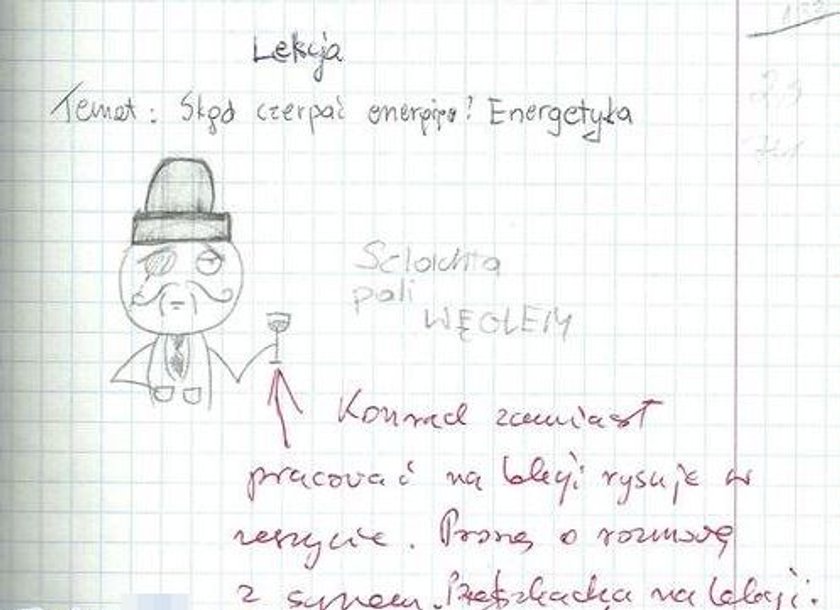 Lekcja
Temat: Skąd czerpać energię? Energetyka
Szlachta
pali
WĘGLEM
Konrad zamiast
pracować na lekcji rysuje w
zeszycie. Proszę o rozmowę
z synem. Przeszkadza na lekcji.